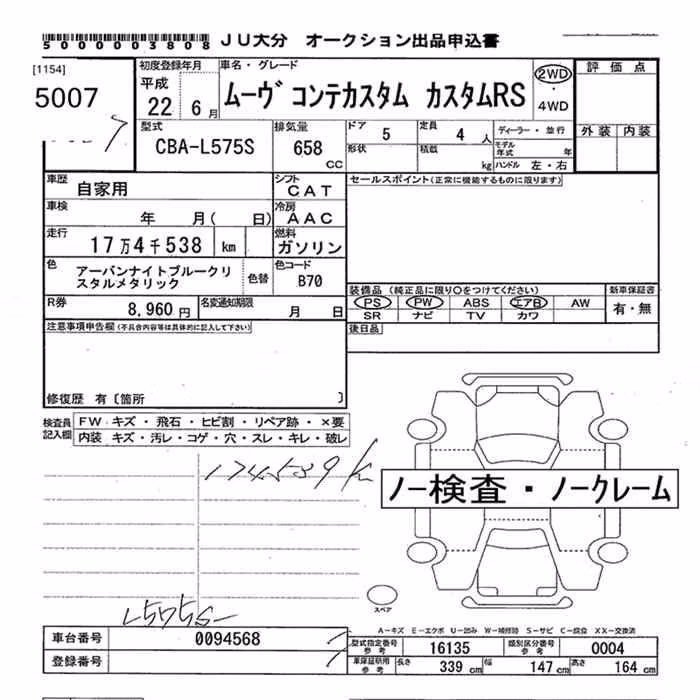 5000003808 JU大分 オークション出品申込書
[1154]
5007
初度登録年月 平成 22 6月
車名・グレード ムーヴ コンテカスタム カスタムRS
2WD ・ 4WD
評価点
外装 内装
型式 CBA-L575S
排気量 658 CC
ドア 5
定員 4 人
ディーラー・並行
形状
積載 kg
モデル年式 年
ハンドル 左・右
車歴 自家用
シフト CAT
セールスポイント(正常に機能するものに限ります)
車検 年 月( 日)
冷房 AAC
走行 17万4千538 km
燃料 ガソリン
色 アーバンナイトブルークリスタルメタリック
色替
色コード B70
装備品 (純正品に限り○をつけてください)
新車保証書
PS PW ABS エアB AW
有・無
SR ナビ TV カワ
R券 8,960円
名変通知期限 月 日
後日品
注意事項申告欄(不具合内容等は具体的に記入して下さい)
修復歴 有〔箇所 〕
検査員記入欄
FW キズ・飛石・ヒビ割・リペア跡・×要
内装 キズ・汚レ・コゲ・穴・スレ・キレ・破レ
174539 km
ノー検査・ノークレーム
スペア
L575S-
A-キズ E-エクボ U-凹み W-補修跡 S-サビ C-腐食 XX-交換済
車台番号 0094568
型式指定番号 参考 16135
類別区分番号 参考 0004
登録番号
車庫証明用 参考 長さ 339 cm 幅 147 cm 高さ 164 cm